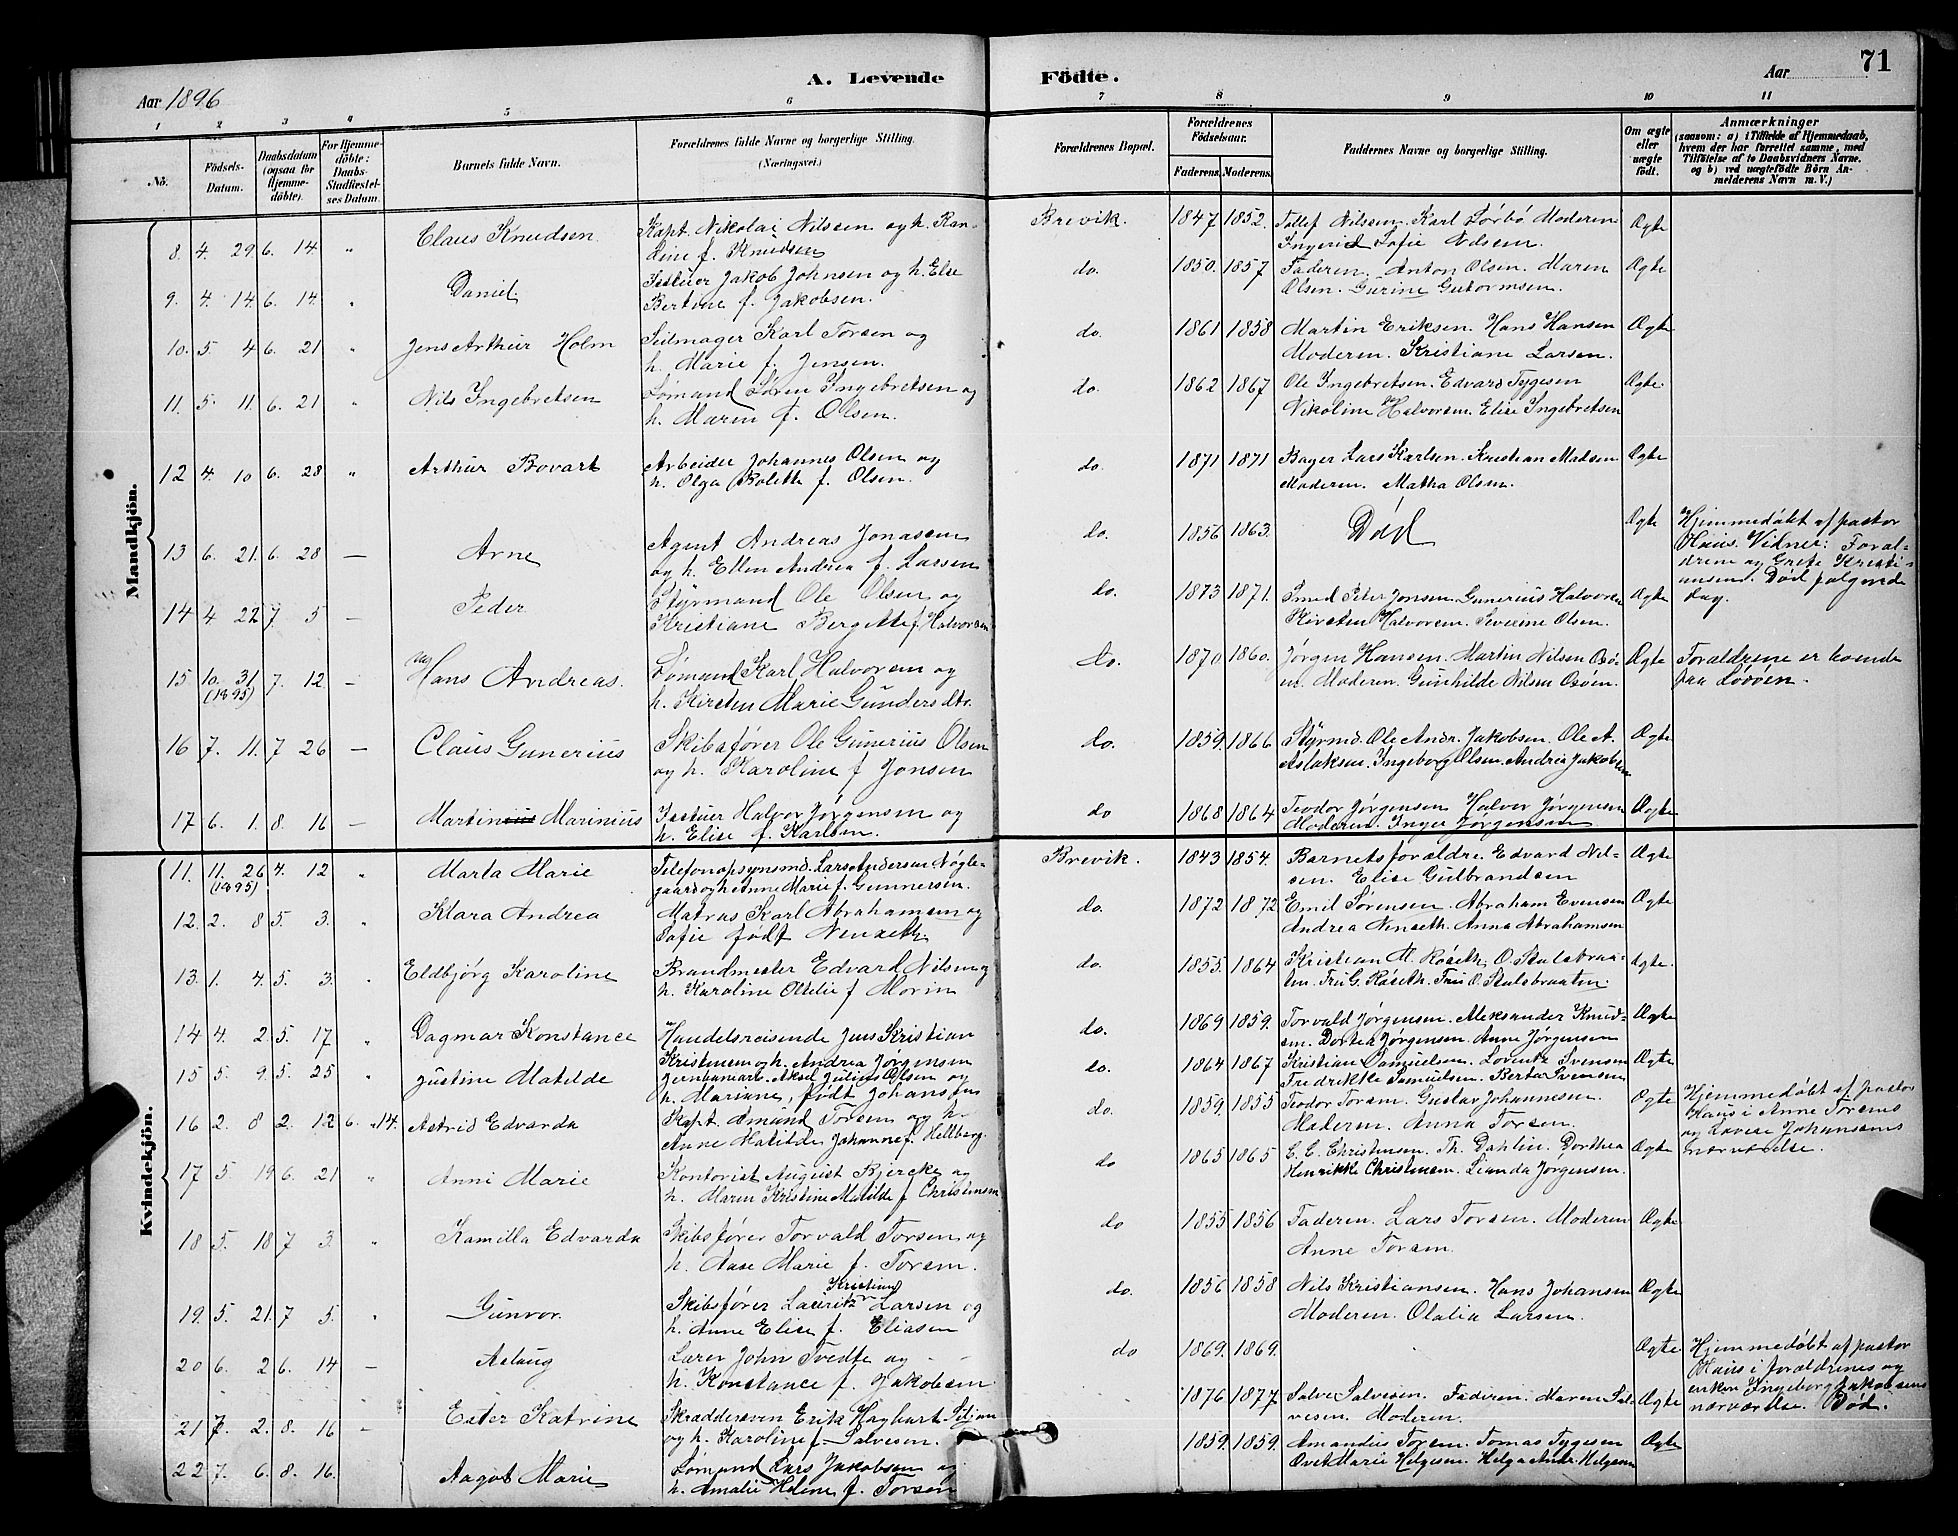 Aar 1896
A. Levende Födte.
Aar 71
1 2 3 4 5 6 7 8 9 10 11
No.
Födsels-Datum.
Daabsdatum (ogsaa for Hjemme-döbte).
For Hjemme-döbte: Daabs-Stadfæstel-ses Datum.
Barnets fulde Navn.
Forældrenes fulde Navne og borgerlige Stilling. (Næringsvei.)
Forældrenes Bopæl.
Forældrenes Födselsaar.
Faderens. Moderens.
Faddernes Navne og borgerlige Stilling.
Om ægte eller uægte födt.
Anmærkninger
(saasom: a) i Tilfælde af Hjemmedaab,
hvem der har forrettet samme, med
Tilföielse af to Daabsvidners Navne.
og b) ved uægtefödte Börn An-
melderens Navn m. V.)
Mandkjön.
8. 4. 29. 6. 14. " Claus Knudsen Kapt. Nikolai Nilssen og h. Ran- Brevik. 1847 1852. Tollef Nilssen. Karl Sørbö Moderen Ægte
dine f. Knudsen Ingerid Sofie Nilsen.
9. 4. 14. 6. 14. " Daniel Isstuer Jakob Johnsen og h. Else do. 1850. 1857 Faderen. Anton Olsen. Maren Ægte
Bertine f. Jakobsen. Olsen. Gurine Gutormsen.
10. 5. 4 6. 21 " Jens Arthur Holm Seilmager Karl Torsen og do. 1861 1858 Martin Eriksen. Hans Hansen Ægte
h. Marie f. Jensen. Moderen. Kristiane Larsen.
11. 5. 11. 6. 21 " Nils Ingebretsen Sømand Søren Ingebretsen og do. 1862 1867 Ole Ingebretsen. Edvard Tygesen Ægte.
h. Maren f. Olsen. Nikoline Halvorsen. Elise Ingebretsen
12 4. 10 6. 28 " Arthur Bovart Arbeider Johannes Olsen og do. 1871 1871 Bager Lars Karlsen. Kristian Madsen Ægte
h. Olga Bolette f. Olsen. Moderen. Matha Olsen.
13 6. 21. 6. 28 — Arne Agent Andreas Jonassen do. 1856 1863. Död Ægte Hjemmedöbt af pastor
og h. Ellen Andrea f. Larsen Haus. Vidner: Foræl-
drene og Grete Kristi-
ansen. Död følgende
dag.
14 4 22 7 5 — Peder Styrmand Ole Olsen og do. 1873 1871. Smed Peter Jonsen. Gunerius Halvorsen Ægte
Kristiane Bergitte f. Halvorsen Kirsten Halvorsen. Severine Olsen.
15 10. 31 (1895) 7. 12 — Hans Andreas. Sømand Karl Halvorsen og do. 1870 1860. Jørgen Hansen. Martin Nilsen Osö- Ægte Forældrene er boende
h. Kirsten Marie Gundersdtr. en. Moderen. Gunhilde Nilsen Osöen. paa
16 7. 11. 7 26 — Claus Gunerius Skibsfører Ole Gunerius Olsen do. 1859. 1866 Styrmd. Ole Andr. Jakobsen. Ole A. Ægte
og h. Karoline f Jonsen Aslaksen. Ingeborg Olsen. Andrea Jakobsen
17 6. 1. 8. 16 — Martinius Marinius Isstuer Halvor Jørgensen og do 1868 1864 Teodor Jørgensen Halvor Jørgensen Ægte
h. Elise f. Karlsen. Moderen. Inger Jørgensen
Kvindekjön.
11. 11. 26 (1895) 4. 12 " Marta Marie Telefonopsynsmd. Lars Andersen Nøgle- Brevik. 1843 1854. Barnets forældre. Edvard Nil- Ægte
gaard og h. Anne Marie f. Gunnersen. sen. Elise Gulbrandsen
12. 2. 8 5. 3. " Klara Andrea Matros Karl Abrahamsen og do. 1872 1872 Emil Sørensen. Abraham Evensen Ægte
Sofie født Nenseth. Andrea Nenseth. Anna Abrahamsen
13. 1. 4. 5. 3. " Eldbjörg Karoline Brandmester Edvard Nilsen og do. 1855. 1864 Kristian M. Röseth. O. Stulsbraa- Ægte.
h. Karoline Ottilie f Morin ten. Fru G. Röseth. Fru O. Stulsbraaten.
14 4. 2. 5. 17 " Dagmar Konstance Handelsreisende Jens Kristian do. 1869 1859. Torvald Jørgensen. Aleksander Knud- Ægte
Kristensen og h. Andrea Jørgensen sen. Dortea Jørgensen. Anne Jørgensen
15 5. 9. 5. 25 " Justine Matilde Jernbanearb. Aksel Julius Olsen og do. 1864 1867 Kristian Samuelsen. Lorentz Svensen Ægte
h. Mariane, født Johansen Fredrikke Samuelsen. Berta Svensen
16 2. 8 2. 12 6. 14. Astrid Edvarda Kapt. Amund Torsen og h. do. 1859. 1855 Teodor Torsen. Gustav Johannesen. Ægte Hjemmedöbt af pastor
Anne Matilde Johanne f. Hellberg. Moderen. Anna Torsen. Haus i Anne Torsens
og Lovise Johansens
nærværelse.
17 5. 19 6. 21 " Anni Marie Kontorist August Bjercke og do 1865 1865 C. C. Christensen. Th. Dahlin. Dorthea Ægte
h. Maren Kristine Matilde f Christensen Henrikke Christensen. Leanda Jørgensen.
18 5. 18 7 3. " Kamilla Edvarda Skibsfører Torvald Torsen og do 1855 1856 Faderen. Lars Torsen. Moderen Ægte
h. Aase Marie f. Torsen. Anne Torsen.
19. 5. 21. 7 5. " Gunvor. Skibsfører Lauritz Kristian Larsen og do. 1856 1858 Nils Kristiansen. Hans Johansen Ægte
h. Anne Elise f. Eliasen Moderen. Olalia Larsen.
20 6. 2 6. 14 — Aslaug Lærer John Tvedte og do 1869. 1869. Ægte Hjemmedöbt af pastor
h. Konstance f. Jakobsen Haus i forældrenes og
enken Ingeborg Jakobsens
nærværelse. Död.
21 7. 2. 8. 16 — Ester Katrine Skræddersven Erik Haybart Siljan 1876 1877 Salve Salvesen. Faderen. Maren Sal- Ægte
og h. Karoline f. Salvesen. vesen. Moderen.
22 7. 6. 8. 16. Aagot Marie Sømand Lars Jakobsen og 1859. 1859. Amandus Torsen. Tomas Tygesen Ægte
h. Amalie Helene f. Torsen Marie Helgesen. Helga Andr. Helgesen